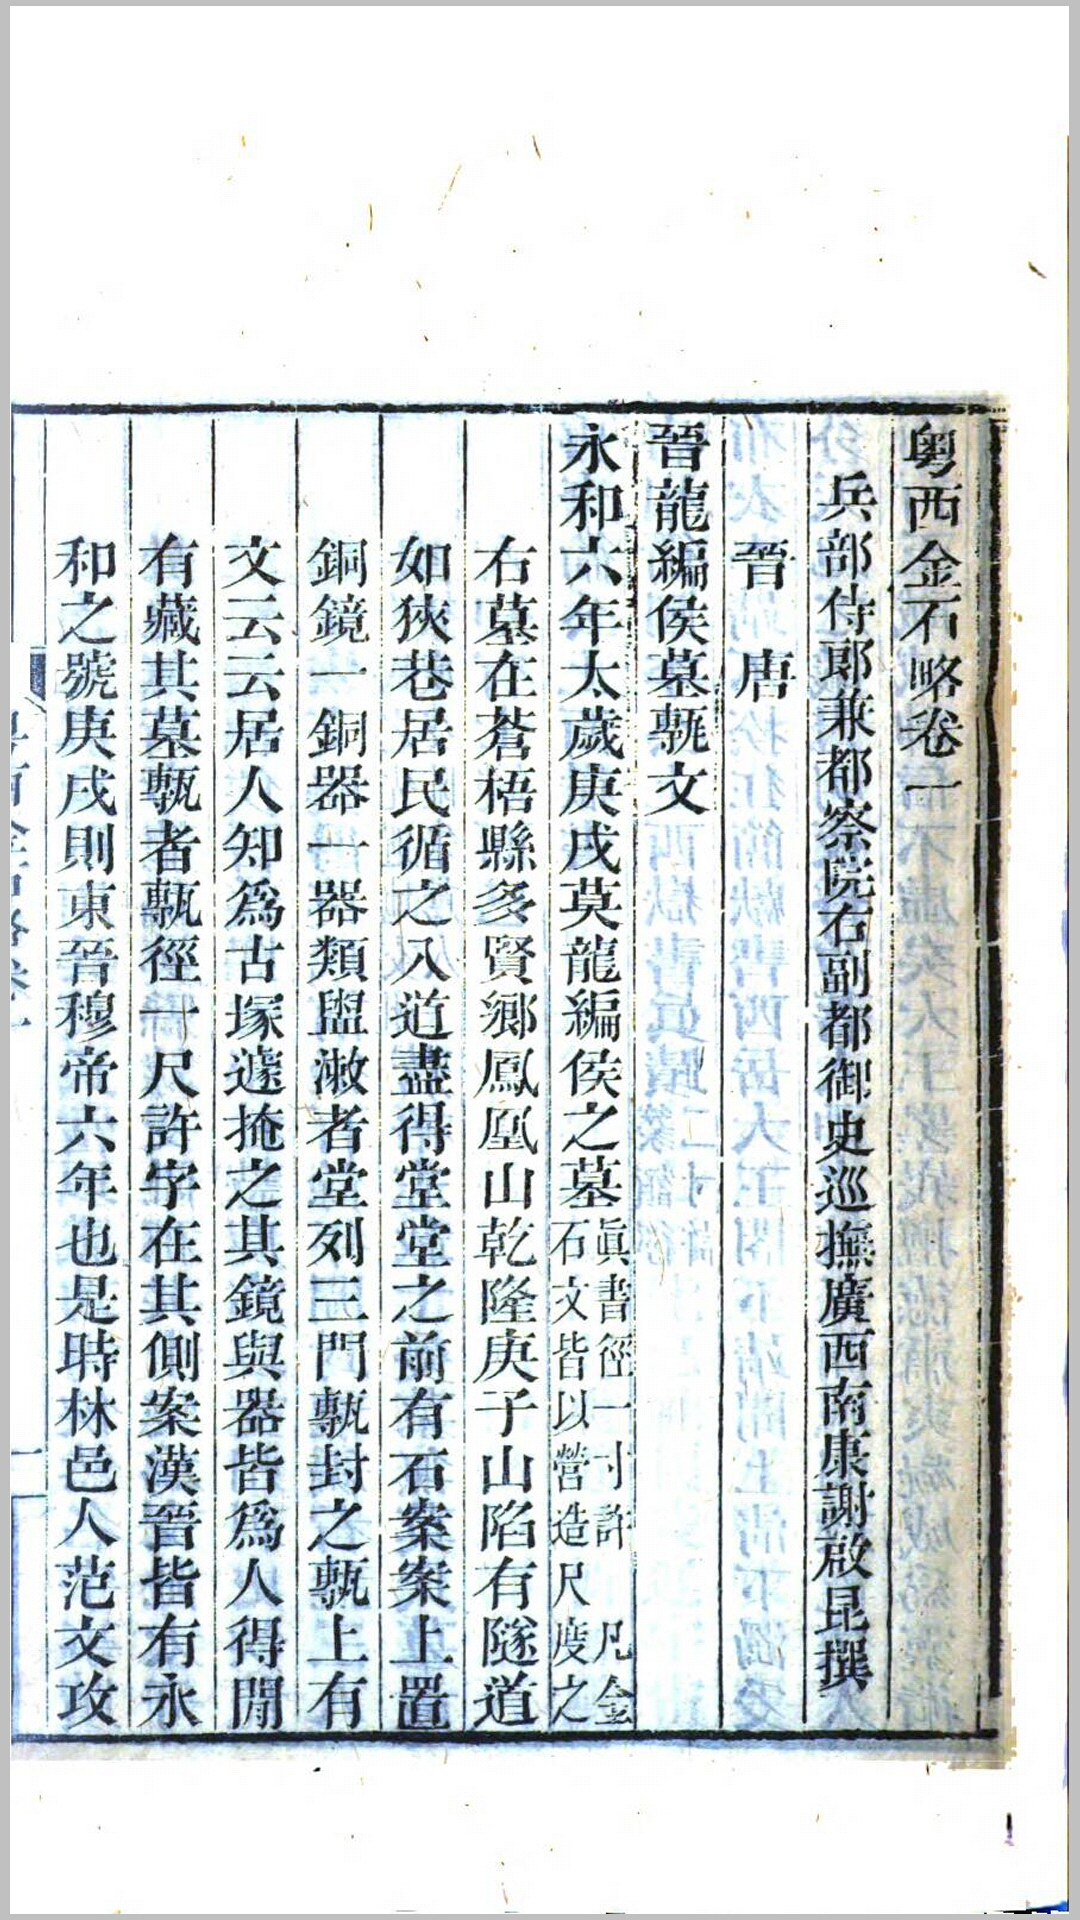 粤西金石略卷一
兵部侍郎兼都察院右副都御史巡撫廣西南康謝啟昆撰
晉　唐
晉龍編侯墓甎文
永和六年太歲庚戌莫龍編侯之墓眞書徑一寸許　凡金石文皆以營造尺度之
右墓在蒼梧縣多賢鄉鳳凰山乾隆庚子山陷有隧道
如狹巷居民循之入道盡得堂堂之前有石案案上置
銅鏡一銅器一器類盥漱者堂列三門甎封之甎上有
文云云居人知爲古塚遽掩之其鏡與器皆爲人得閒
有藏其墓甎者甎徑一尺許字在其側案漢晉皆有永
和之號庚戌則東晉穆帝六年也是時林邑人范文攻